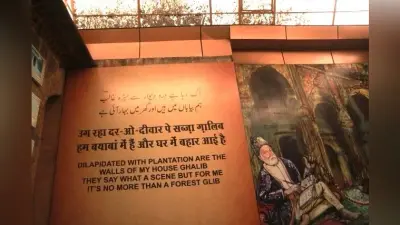 اگ رہا ہے در و دیوار سے سبزہ غالبؔ
ہم بیاباں میں ہیں اور گھر میں بہار آئی ہے
उग रहा दर-ओ-दीवार पे सब्ज़ा ग़ालिब
हम बयाबां में हैं और घर में बहार आई है
DILAPIDATED WITH PLANTATION ARE THE
WALLS OF MY HOUSE GHALIB
THEY SAY WHAT A SCENE BUT FOR ME
IT'S NO MORE THAN A FOREST GLIB